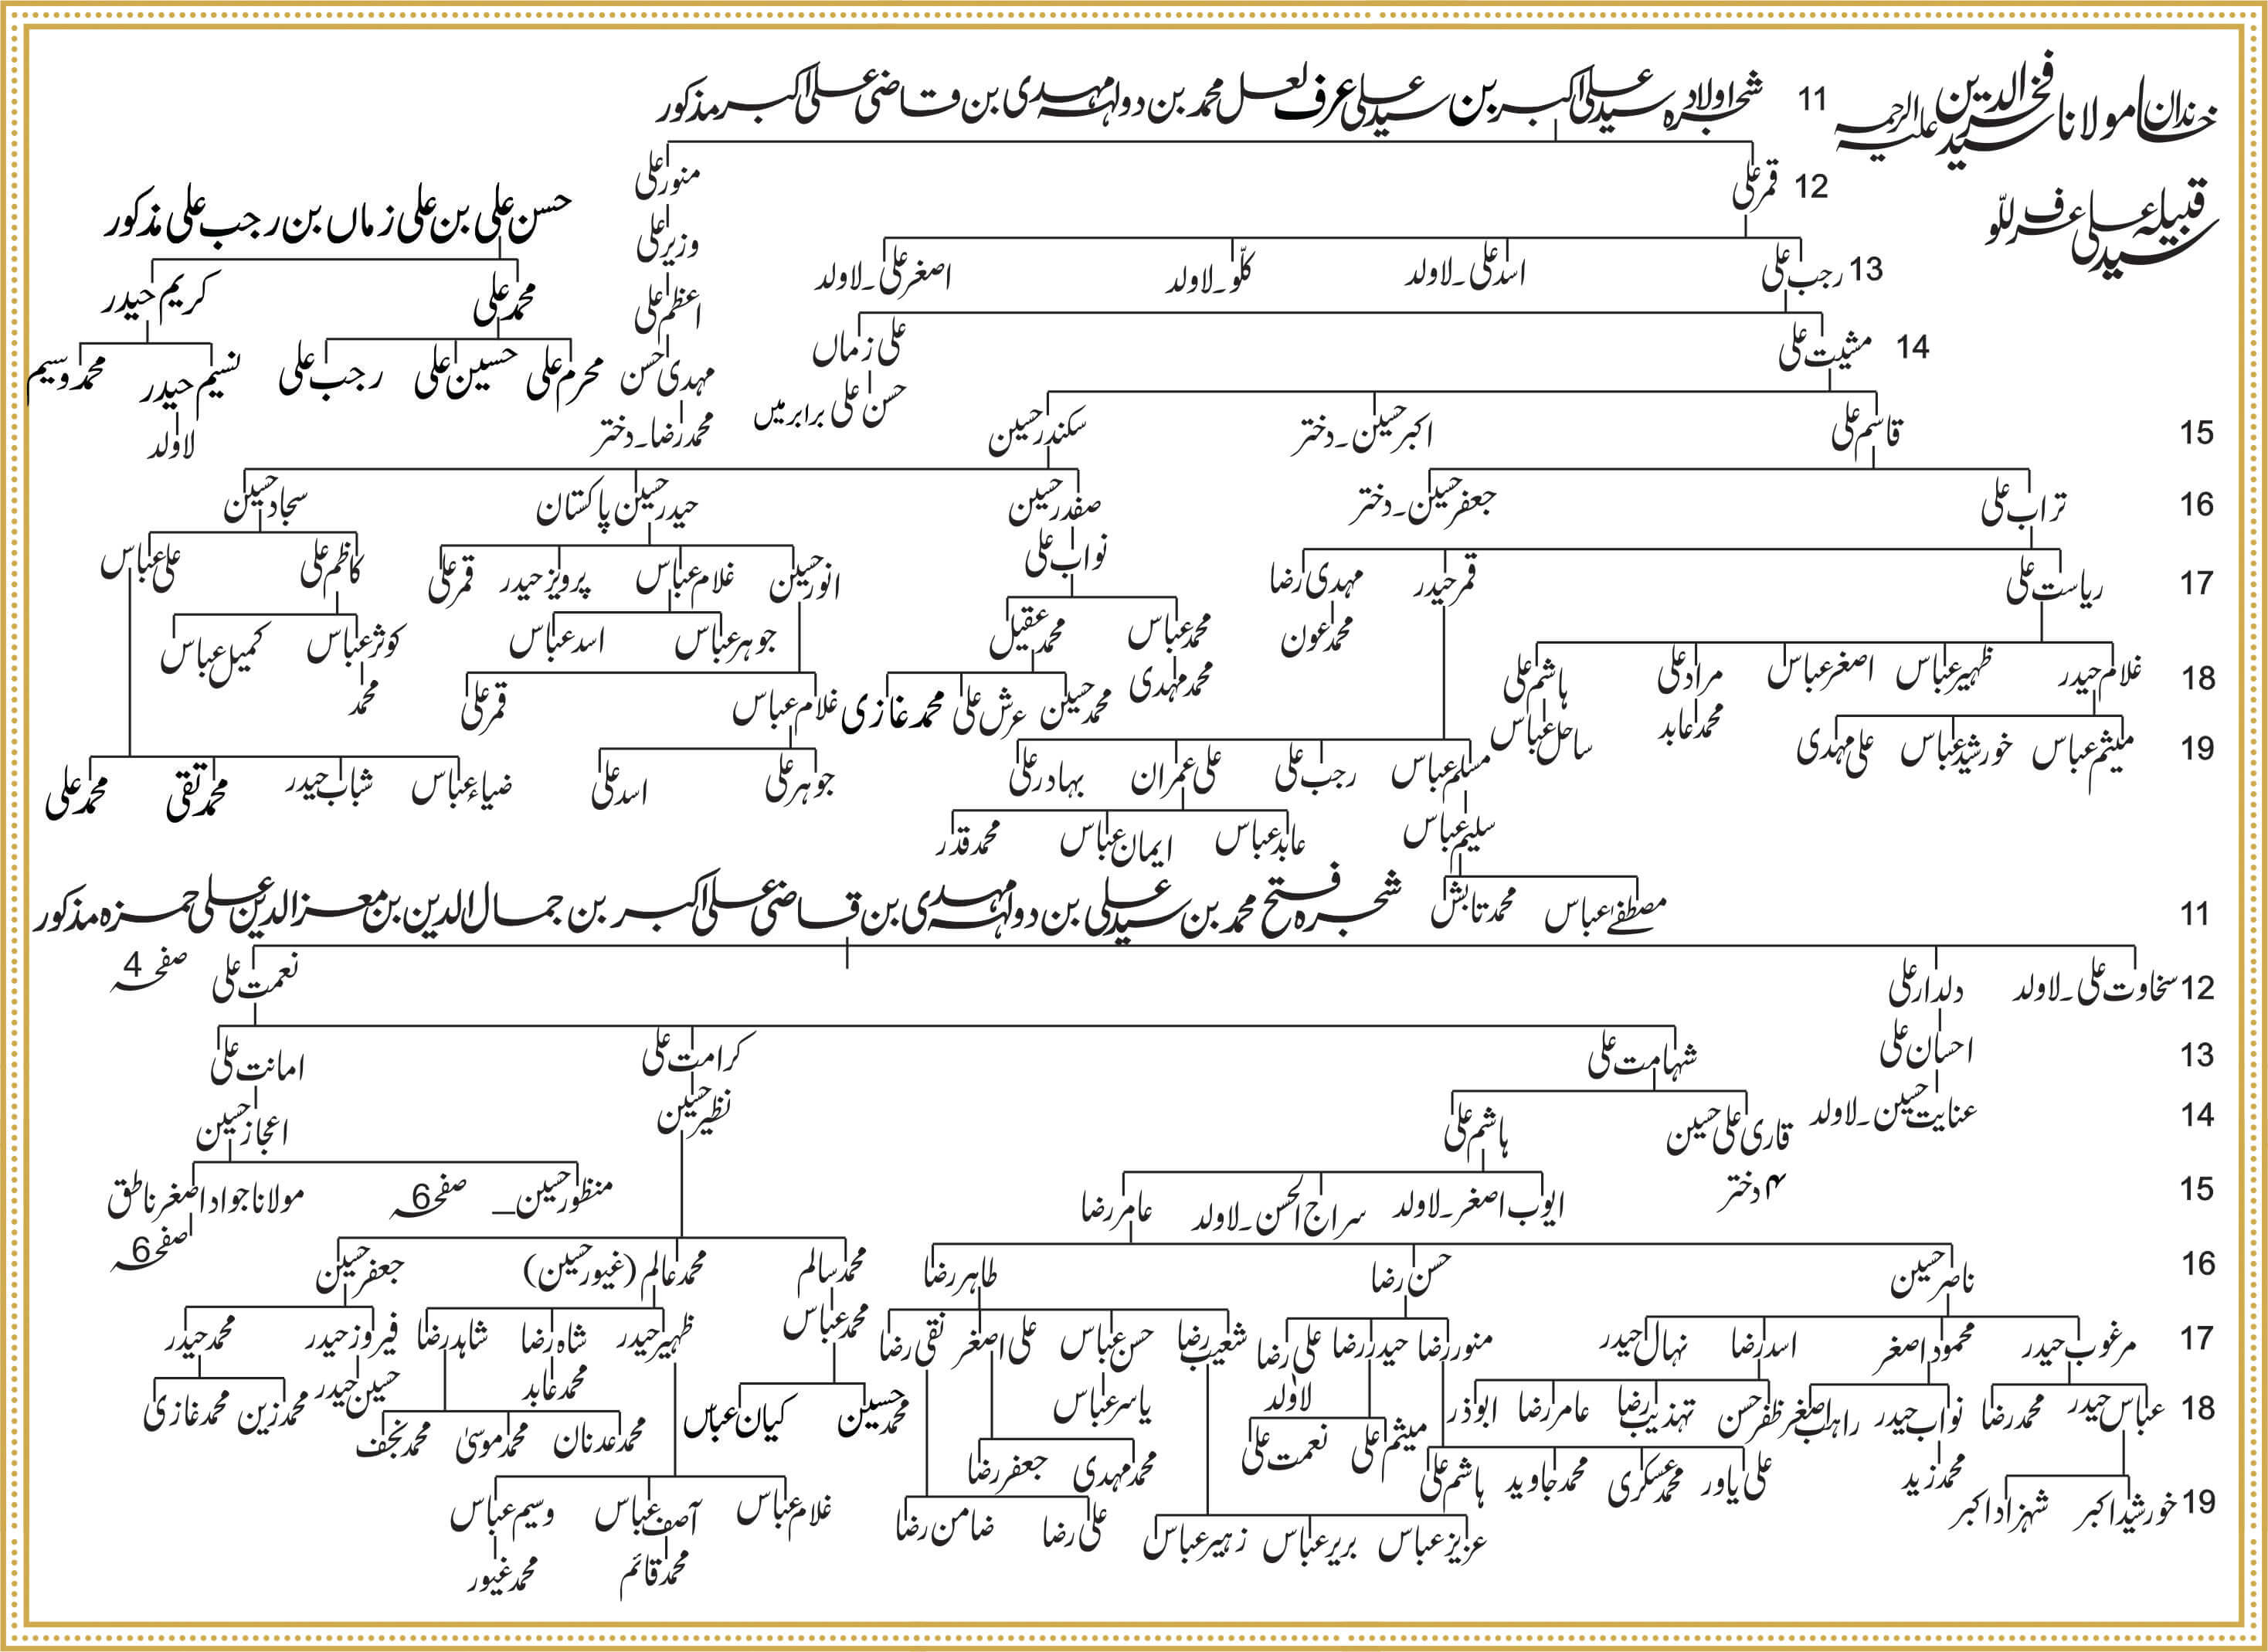 خاندان مولانا سید فخرالدین علیہ الرحمہ
11 شجرہ اولاد سید علی اکبر بن سید علی عرف لعل محمد بن دولہہ مہدی بن قاضی علی اکبر مذکور
قبیلہ سید علی عرف للّو
12 قمر علی منور علی
وزیر علی
حسن علی بن علی زماں بن رجب علی مذکور
13 رجب علی اسد علی۔لاولد کلّو۔لاولد اصغر علی۔لاولد
اعظم علی محمد علی کریم حیدر
14 مشیت علی علی زماں
مہدی حسن محرم علی حسین علی رجب علی نسیم حیدر محمد وسیم
حسن علی برابر میں
لاولد
15 قاسم علی اکبر حسین۔دختر سکندر حسین محمد رضا۔دختر
16 تراب علی جعفر حسین۔دختر صفدر حسین حیدر حسین پاکستان سجاد حسین
نواب علی
17 ریاست علی قمر حیدر مہدی رضا انور حسین غلام عباس پرویز حیدر قمر علی کاظم علی علی عباس
محمد عون محمد عباس محمد عقیل جوہر عباس اسد عباس کوثر عباس کمیل عباس
18 غلام حیدر ظہیر عباس اصغر عباس مراد علی ہاشم علی محمد مہدی محمد حسین عرش علی محمد غازی غلام عباس قمر علی محمد
محمد عابد ساحل عباس
19 میثم عباس خورشید عباس علی مہدی مسلم عباس رجب علی علی عمران بہادر علی جوہر علی اسد علی ضیاء عباس شباب حیدر محمد تقی محمد علی
سلیم عباس عابد عباس ایمان عباس محمد قدر
مصطفےٰ عباس محمد تابش
11 شجرہ فتح محمد بن سید علی بن دولہہ مہدی بن قاضی علی اکبر بن جمال الدین بن معز الدین علی حمزہ مذکور
12 سخاوت علی۔لاولد دلدار علی نعمت علی صفحہ 4
13 احسان علی شہامت علی کرامت علی امانت علی
14 عنایت حسین۔لاولد قاری علی حسین ہاشم علی نظیر حسین اعجاز حسین
15 ۴ دختر ایوب اصغر۔لاولد سراج الحسن۔لاولد عامر رضا منظور حسین_ صفحہ 6 مولانا جواد اصغر ناطق
صفحہ 6
16 ناصر حسین حسن رضا طاہر رضا محمد سالم محمد عالم (غیور حسین) جعفر حسین
17 مرغوب حیدر محمود اصغر اسد رضا نہال حیدر منور رضا حیدر رضا علی رضا شعیب رضا حسن عباس علی اصغر نقی رضا محمد عباس ظہیر حیدر شاہ رضا شاہد رضا فیروز حیدر محمد حیدر
لاولد محمد عابد حسین حیدر
18 عباس حیدر محمد رضا نواب حیدر راہب اصغر ظفر حسن تہذیب رضا عامر رضا ابوذر یاسر عباس محمد حسین کیان عباس محمد زین محمد غازی
میثم علی نعمت علی محمد عدنان محمد موسیٰ محمد نجف
محمد زید علی یاور محمد عسکری محمد جاوید ہاشم علی محمد مہدی جعفر رضا
19 خورشید اکبر شہزاد اکبر علی رضا ضامن رضا غلام عباس آصف عباس وسیم عباس
عزیز عباس بریر عباس زہیر عباس
محمد قائم محمد غیور